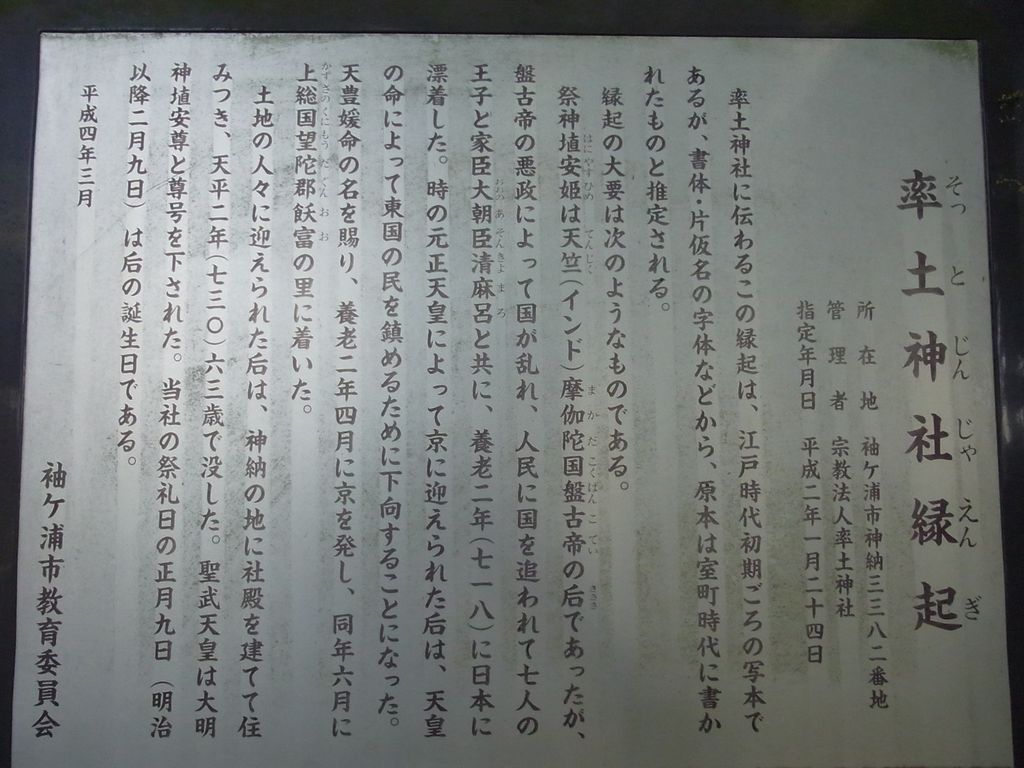 率土神社縁起
そっとじんじゃえんぎ
所在地 袖ケ浦市神納三三八二番地
管理者 宗教法人率土神社
指定年月日 平成二年一月二十四日
率土神社に伝わるこの縁起は、江戸時代初期ごろの写本で
あるが、書体・片仮名の字体などから、原本は室町時代に書か
れたものと推定される。
縁起の大要は次のようなものである。
祭神埴安姫は天竺(インド)摩伽陀国盤古帝の后であったが、
はにやすひめ てんじく まかだこくばんこてい きさき
盤古帝の悪政によって国が乱れ、人民に国を追われて七人の
王子と家臣大朝臣清麻呂と共に、養老二年(七一八)に日本に
おおのあそんきよまろ
漂着した。時の元正天皇によって京に迎えられた后は、天皇
の命によって東国の民を鎮めるために下向することになった。
天豊媛命の名を賜り、養老二年四月に京を発し、同年六月に
上総国望陀郡飫富の里に着いた。
かずさのくにもうだぐんおお
土地の人々に迎えられた后は、神納の地に社殿を建てて住
みつき、天平二年(七三〇)六三歳で没した。聖武天皇は大明
神埴安尊と尊号を下された。当社の祭礼日の正月九日(明治
以降二月九日)は后の誕生日である。
平成四年三月
袖ケ浦市教育委員会